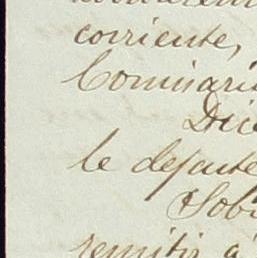 corriente,
Comisari
Dic
le defaute
Sobr
remitir á